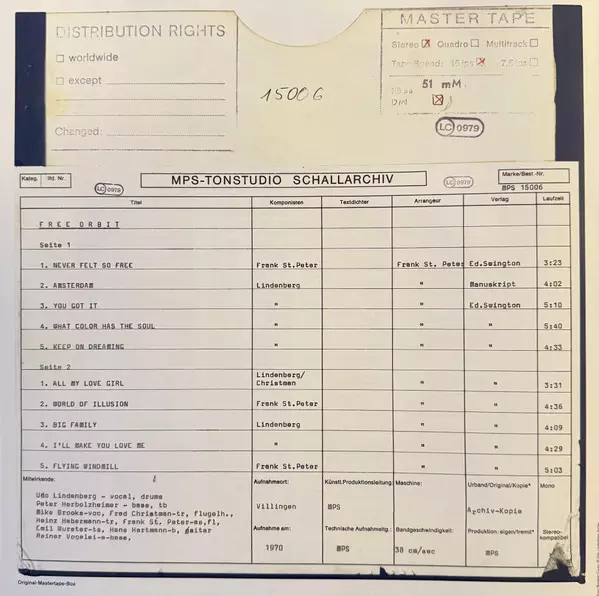 DISTRIBUTION RIGHTS
worldwide
except
Changed:
1500G
MASTER TAPE
Stereo Quadro Multitrack
Tape Speed: 15 ips 7,5 ips
51 mM
LC 0979
Kateg. lfd. Nr.
LC 0979
MPS-TONSTUDIO SCHALLARCHIV
LC 0979
Marke/Best.-Nr.
MPS 15006
Titel Komponisten Textdichter Arrangeur Verlag Laufzeit
FREE ORBIT
Seite 1
1. NEVER FELT SO FREE Frank St.Peter Frank St. Peter Ed.Swington 3:23
2. AMSTERDAM Lindenberg " Manuskript 4:02
3. YOU GOT IT " " Ed.Swington 5:10
4. WHAT COLOR HAS THE SOUL " " " 5:40
5. KEEP ON DREAMING " " " 4:33
Seite 2
1. ALL MY LOVE GIRL Lindenberg/ Christman " " 3:31
2. WORLD OF ILLUSION Frank St.Peter " " 4:36
3. BIG FAMILY Lindenberg " " 4:09
4. I'LL MAKE YOU LOVE ME " " " 4:29
5. FLYING WINDMILL Frank St.Peter " " 5:03
Mitwirkende:
Udo Lindenberg - vocal, drums
Peter Herbolzheimer - bass, tb
Mike Brooks-voc, Fred Christman-tr, flugelh.,
Heinz Habermann-tr, Frank St. Peter-as,fl,
Emil Wurster-ts, Hans Hartmann-b, gaitar
Reiner Vogelei-s-bass,
Aufnahmeort: Künstl. Produktionsleitung: Maschine: Urband/Original/Kopie* Mono
Villingen MPS Archiv-Kopie
Aufnahme am: Technische Aufnahmeltg.: Bandgeschwindigkeit: Produktion: eigen/fremd* Stereo-
kompatibel
1970 MPS 38 cm/sec MPS
Original-Mastertape-Box